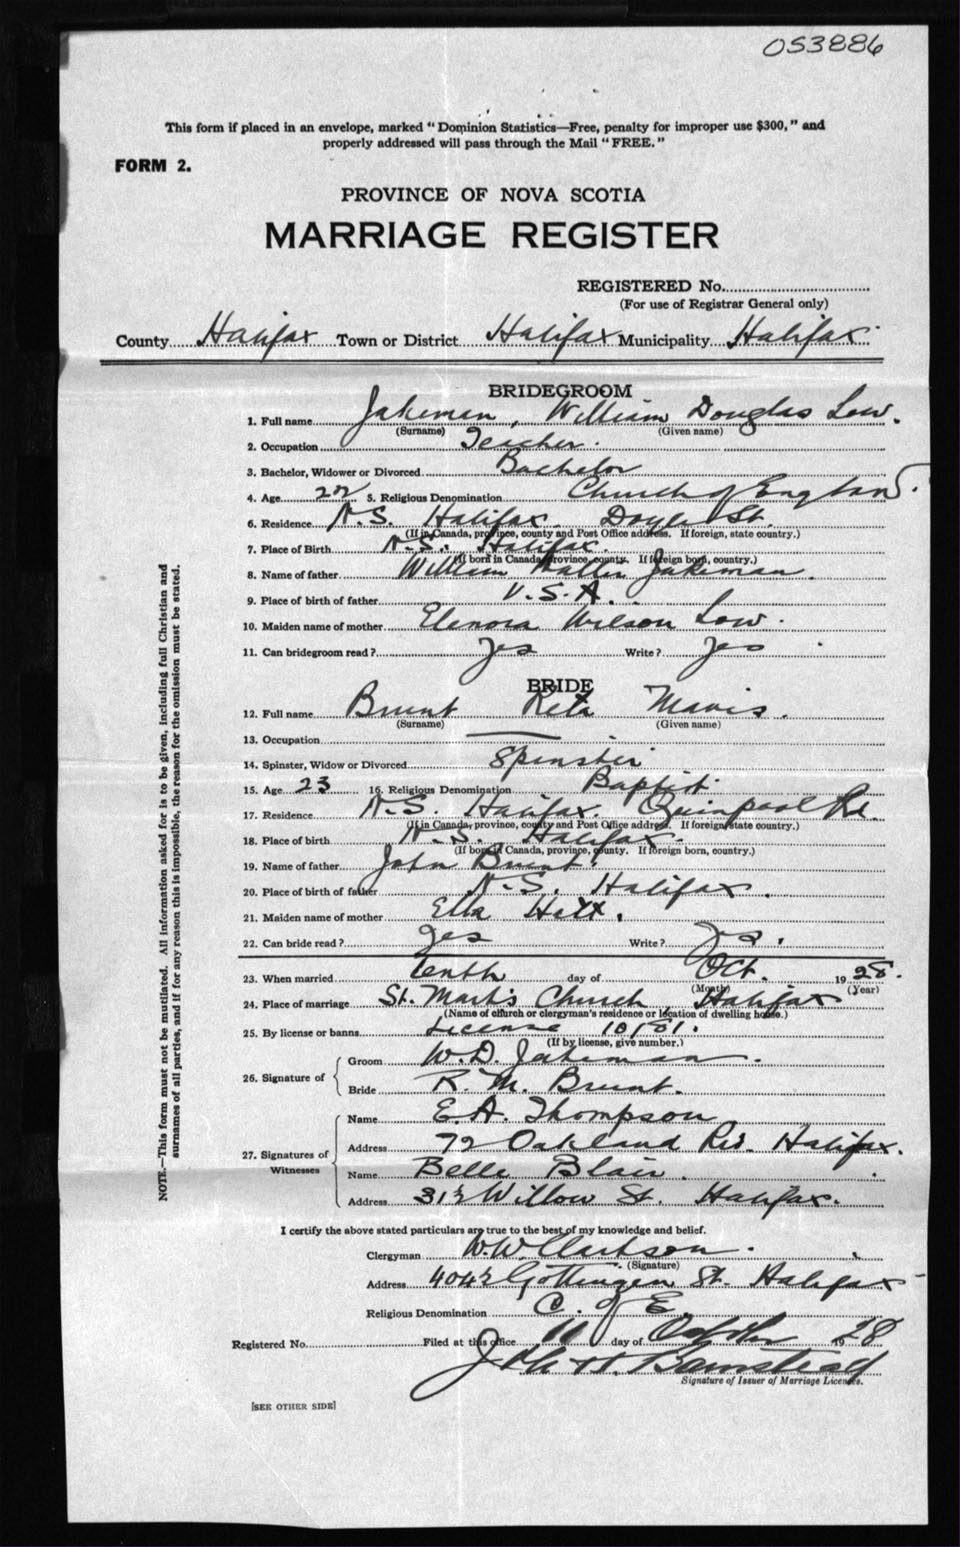 053886
This form if placed in an envelope, marked "Dominion Statistics—Free, penalty for improper use $300," and
properly addressed will pass through the Mail "FREE."
FORM 2.
PROVINCE OF NOVA SCOTIA
MARRIAGE REGISTER
REGISTERED No.
(For use of Registrar General only)
County Halifax Town or District Halifax Municipality Halifax
BRIDEGROOM
1. Full name Jakeman, William Douglas Low.
(Surname) (Given name)
2. Occupation Teacher.
3. Bachelor, Widower or Divorced Bachelor
4. Age 22 5. Religious Denomination Church of England.
6. Residence N.S. Halifax. Doyle St.
(If in Canada, province, county and Post Office address. If foreign, state country.)
7. Place of Birth N.S. Halifax.
(If born in Canada, province, county. If foreign born, country.)
8. Name of father William Jakeman.
9. Place of birth of father U.S.A.
10. Maiden name of mother Elenora Wilson Low.
11. Can bridegroom read? Yes Write? Yes
BRIDE
12. Full name Brunt Reta Mavis.
(Surname) (Given name)
13. Occupation —
14. Spinster, Widow or Divorced Spinster
15. Age 23 16. Religious Denomination Baptist.
17. Residence N.S. Halifax. Quinpool Rd.
(If in Canada, province, county and Post Office address. If foreign, state country.)
18. Place of birth N.S. Halifax.
(If born in Canada, province, county. If foreign born, country.)
19. Name of father John Brunt.
20. Place of birth of father N.S. Halifax.
21. Maiden name of mother Ella Hatt.
22. Can bride read? Yes Write? Yes.
23. When married tenth day of Oct. 1928.
(Month) (Year)
24. Place of marriage St. Mark's Church, Halifax
(Name of church or clergyman's residence or location of dwelling house.)
25. By license or banns License 10181.
(If by license, give number.)
26. Signature of Groom W.D. Jakeman.
Bride R. M. Brunt.
27. Signatures of Witnesses Name E.A. Thompson
Address 72 Oakland Rd. Halifax.
Name Belle Blair.
Address 31½ Willow St. Halifax.
I certify the above stated particulars are true to the best of my knowledge and belief.
Clergyman W.W. Clarkson.
(Signature)
Address 404½ Gottingen St. Halifax
Religious Denomination C. of E.
Registered No. Filed at this office 11 day of October 1928
Signature of Issuer of Marriage Licenses.
[SEE OTHER SIDE]
NOTE.—This form must not be mutilated. All information asked for is to be given, including full Christian and
surnames of all parties, and if for any reason this is impossible, the reason for the omission must be stated.